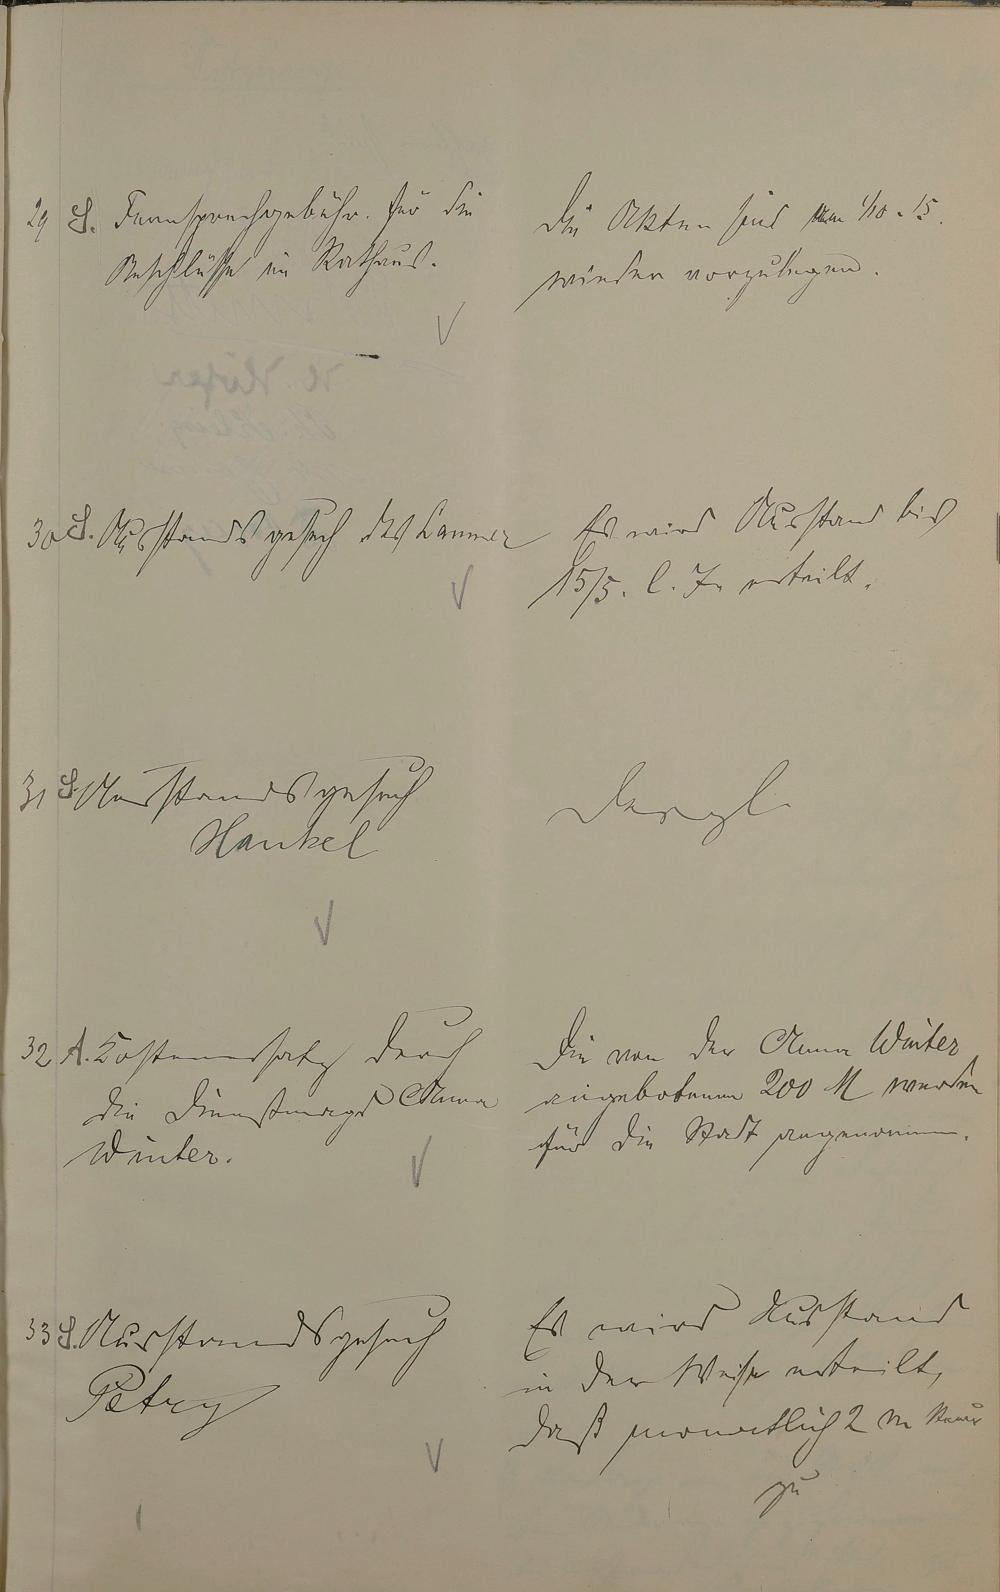 29 S. Fernsprechgebühr. für die
Beschlüsse im Rathaus.
Die Akten sind am 1/10. 15.
wieder vorzulegen.
30 S. Ausstandsgesuch des Lammer
Es wird Ausstand bis
15/5. l. J. erteilt.
31 S. Ausstandsgesuch
Hankel
Dergl.
32 A. Kostenersatz durch
die Dienstmagd Anna
Winter.
Die von der Anna Winter
angebotenen 200 M werden
für die Stadt angenommen.
33 S. Ausstandsgesuch
Petry
Es wird Ausstand
in der Weise erteilt,
daß monatlich 2 M Steuer
zu